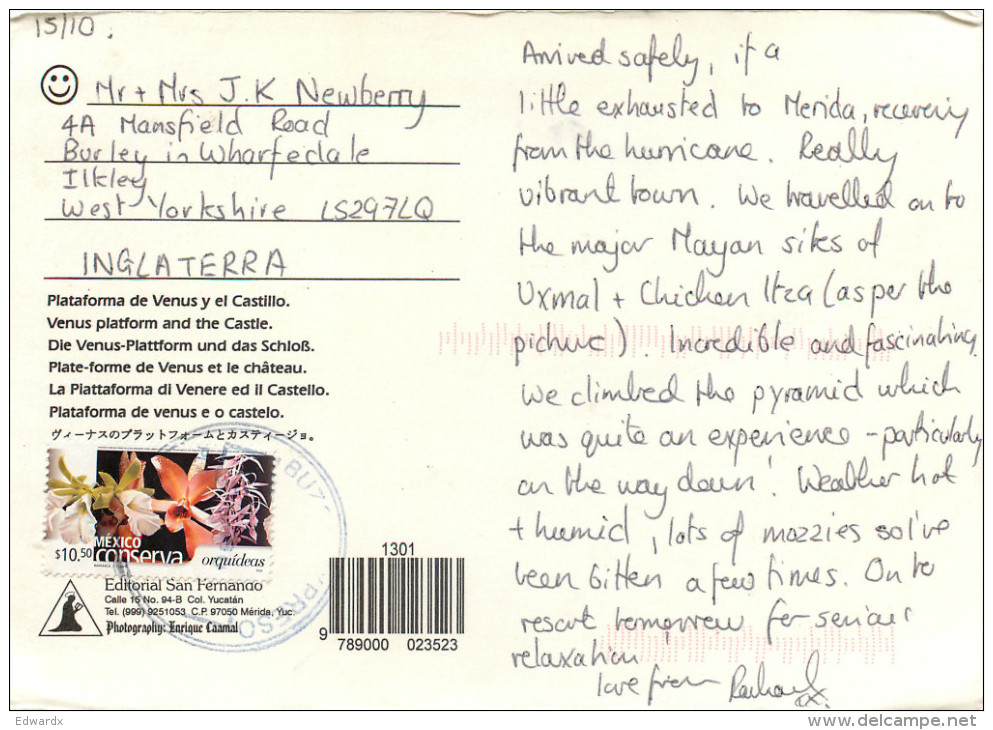 15/10.
Mr + Mrs J.K Newberry
4A Mansfield Road
Burley in Wharfedale
Ilkley
West Yorkshire LS297LQ
INGLATERRA
Plataforma de Venus y el Castillo.
Venus platform and the Castle.
Die Venus-Plattform und das Schloß.
Plate-forme de Venus et le château.
La Piattaforma di Venere ed il Castello.
Plataforma de venus e o castelo.
ヴィーナスのプラットフォームとカスティージョ。
MEXICO
conserva
$10.50
orquídeas
BUZ
PRESO
Editorial San Fernando
Calle 15 No. 94-B Col. Yucatán
Tel. (999) 9251053 C.P. 97050 Mérida, Yuc.
Photography: Enrique Caamal
1301
9 789000 023523
Arrived safely, if a
little exhausted to Merida, recovering
from the hurricane. Really
vibrant town. We travelled on to
the major Mayan sites of
Uxmal + Chichen Itza (as per the
picture). Incredible and fascinating.
We climbed the pyramid which
was quite an experience - particularly
on the way down! Weather hot
+ humid, lots of mozzies so I've
been bitten a few times. On to
resort tomorrow for serious
relaxation
love from Rachael x.
Edwardx
www.delcampe.net